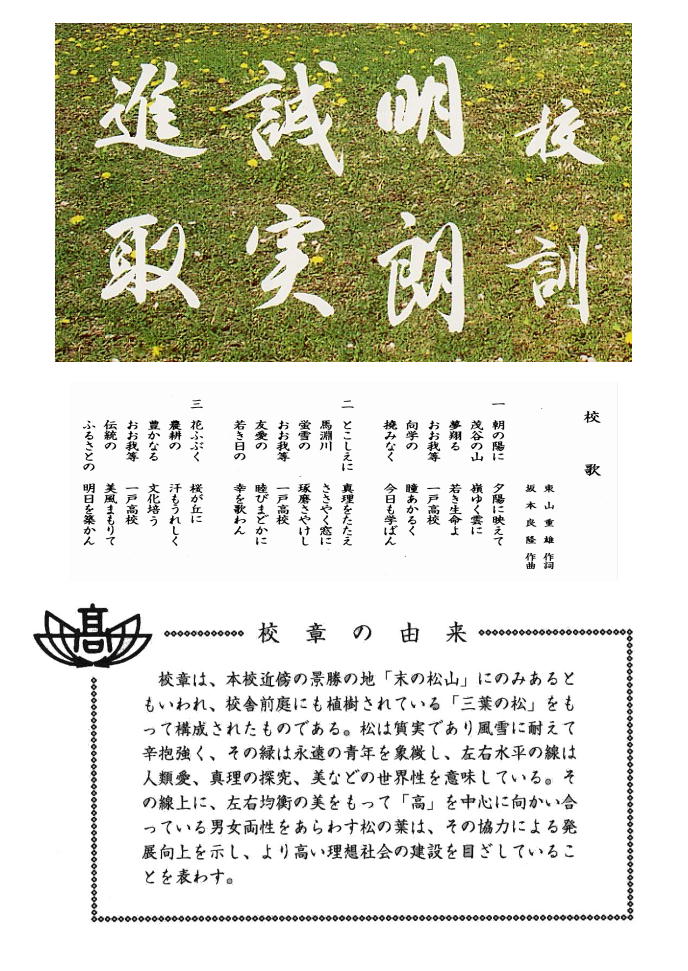 校訓
明朗
誠実
進取
校歌
東山重雄 作詞
坂本良隆 作曲
一 朝の陽に 夕陽に映えて
茂谷の山 嶺ゆく雲に
夢翔る 若き生命よ
おお我等 一戸高校
向学の 瞳あかるく
撓みなく 今日も学ばん
二 とこしえに 真理をたたえ
馬淵川 ささやく窓に
蛍雪の 琢磨さやけし
おお我等 一戸高校
友愛の 睦びまどかに
若き日の 幸を歌わん
三 花ふぶく 桜が丘に
農耕の 汗もうれしく
豊かなる 文化培う
おお我等 一戸高校
伝統の 美風まもりて
ふるさとの 明日を築かん
高
校章の由来
校章は、本校近傍の景勝の地「末の松山」にのみあると
もいわれ、校舎前庭にも植樹されている「三葉の松」をも
って構成されたものである。松は質実であり風雪に耐えて
辛抱強く、その緑は永遠の青年を象徴し、左右水平の線は
人類愛、真理の探究、美などの世界性を意味している。そ
の線上に、左右均衡の美をもって「高」を中心に向かい合
っている男女両性をあらわす松の葉は、その協力による発
展向上を示し、より高い理想社会の建設を目ざしているこ
とを表わす。